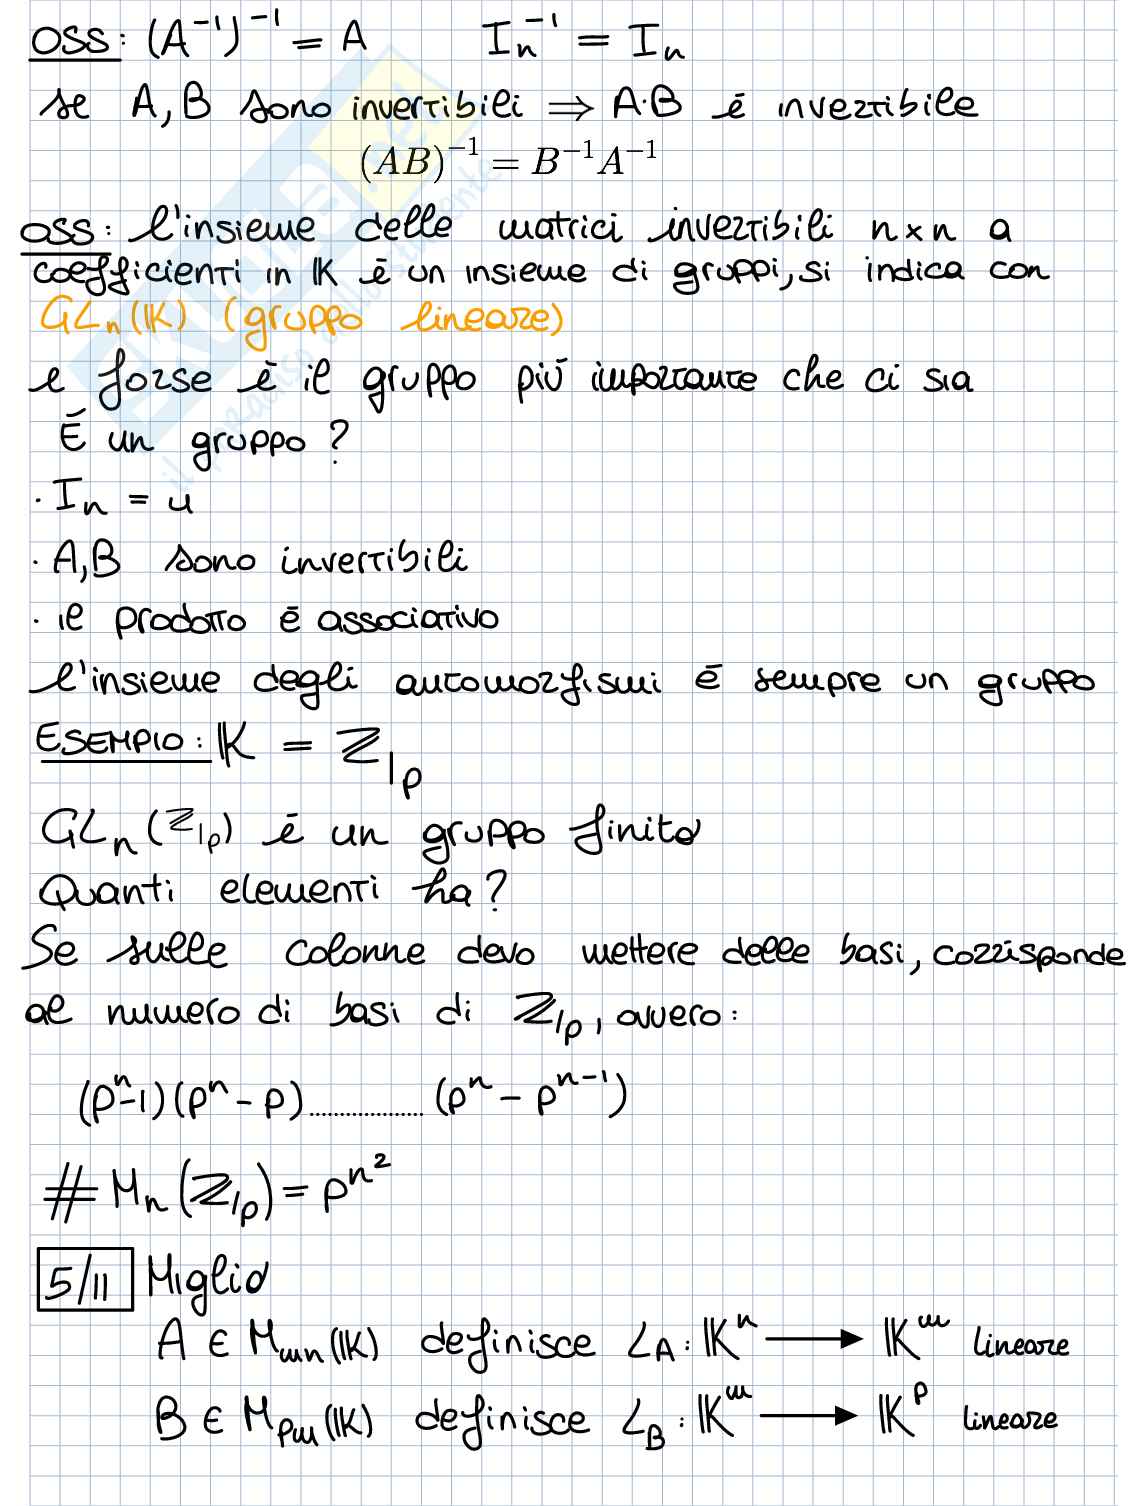 OSS: (A⁻¹)⁻¹ = A    Iₙ⁻¹ = Iₙ
se A, B sono invertibili ⇒ A·B è invertibile
(AB)⁻¹ = B⁻¹A⁻¹
OSS: l'insieme delle matrici invertibili n×n a
coefficienti in 𝕂 è un insieme di gruppi, si indica con
GLₙ(𝕂) (gruppo lineare)
e forse è il gruppo più importante che ci sia
È un gruppo?
· Iₙ = u
· A,B sono invertibili
· il prodotto è associativo
l'insieme degli automorfismi è sempre un gruppo
ESEMPIO: 𝕂 = ℤ/p
GLₙ(ℤ/p) è un gruppo finito
Quanti elementi ha?
Se sulle colonne devo mettere delle basi, corrisponde
al numero di basi di ℤ/p, ovvero:
(pⁿ-1)(pⁿ-p)...................(pⁿ-pⁿ⁻¹)
# Mₙ(ℤ/p) = p^n²
5/11 Miglio
A ∈ Mmn(𝕂) definisce L_A: 𝕂ⁿ ⟶ 𝕂ᵐ lineare
B ∈ Mpm(𝕂) definisce L_B: 𝕂ᵐ ⟶ 𝕂ᵖ lineare